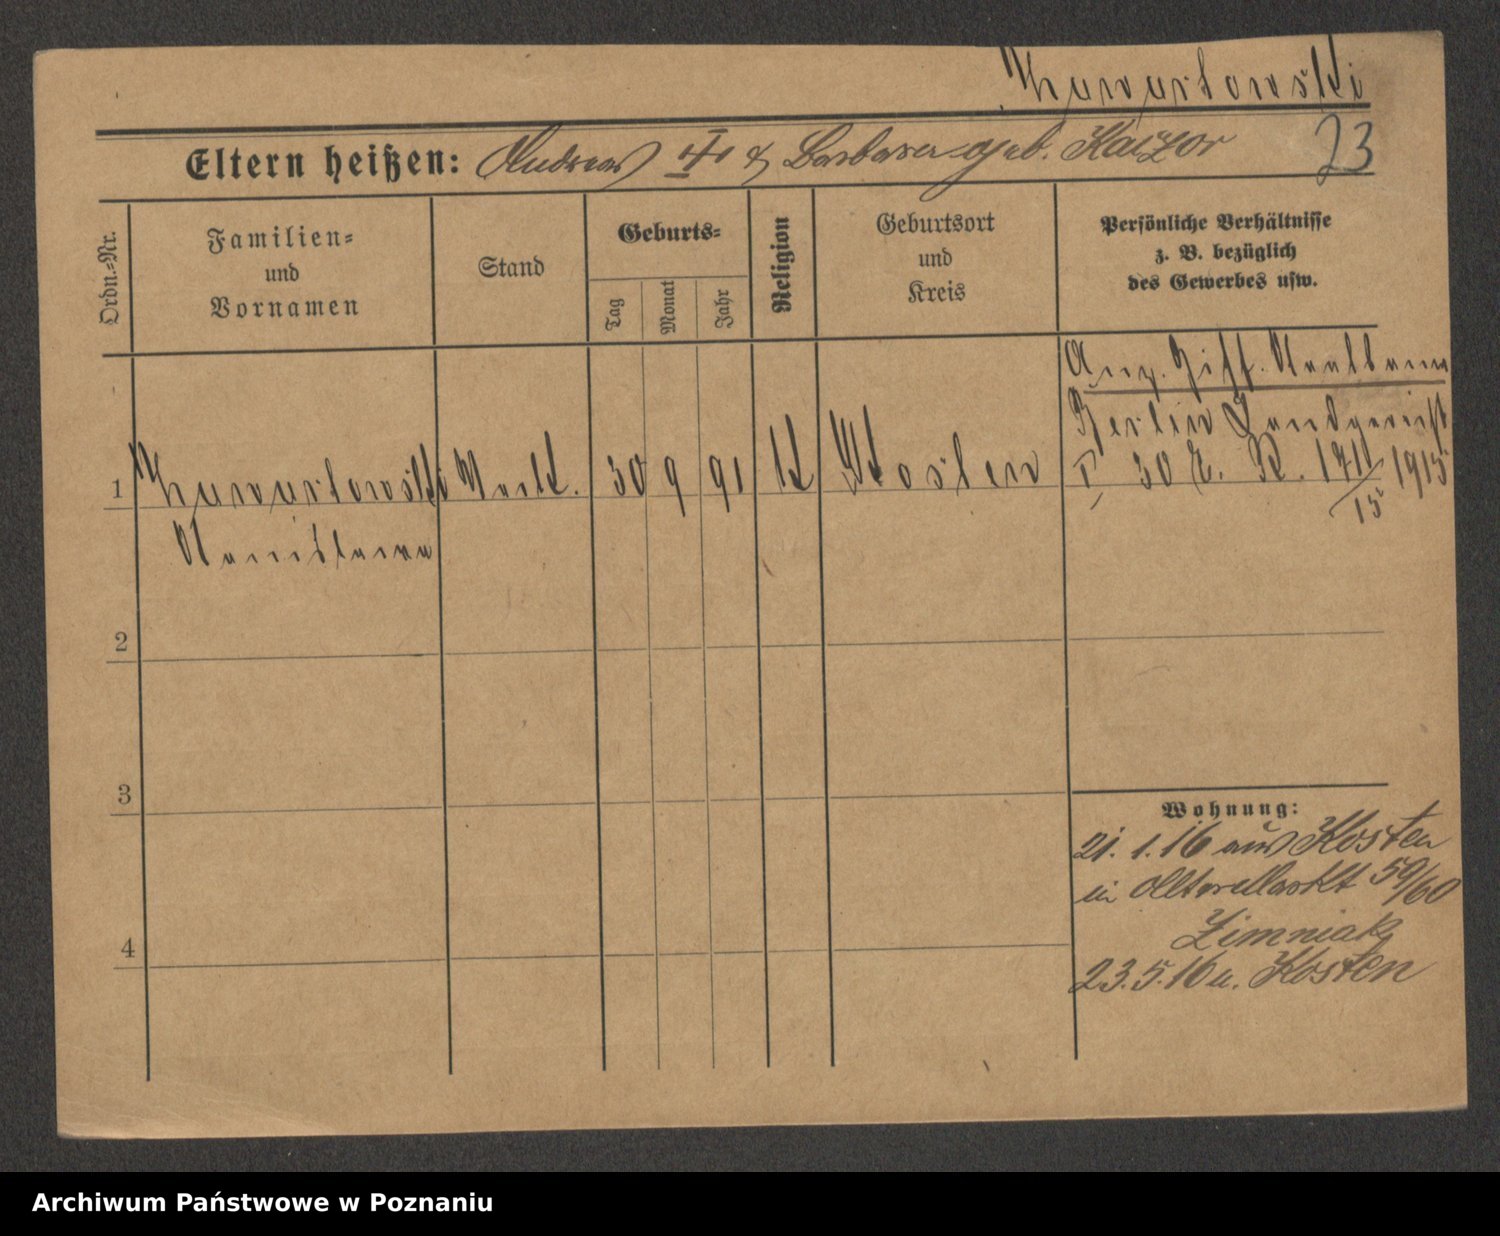 23
Eltern heißen: Andreas & Barbara geb. Kaczor
Ordn.=Nr.
Familien=
und
Vornamen
Stand
Geburts=
Tag
Monat
Jahr
Religion
Geburtsort
und
Kreis
Persönliche Verhältnisse
z. B. bezüglich
des Gewerbes usw.
Berlin Landgericht
1 30 9 91 K Kosten I 30 R. 1915
2
3
4
Wohnung:
21. 1. 16 aus Kosten
in Alter Markt 59/60
Zimniak
23. 5. 16 n. Kosten
Archiwum Państwowe w Poznaniu